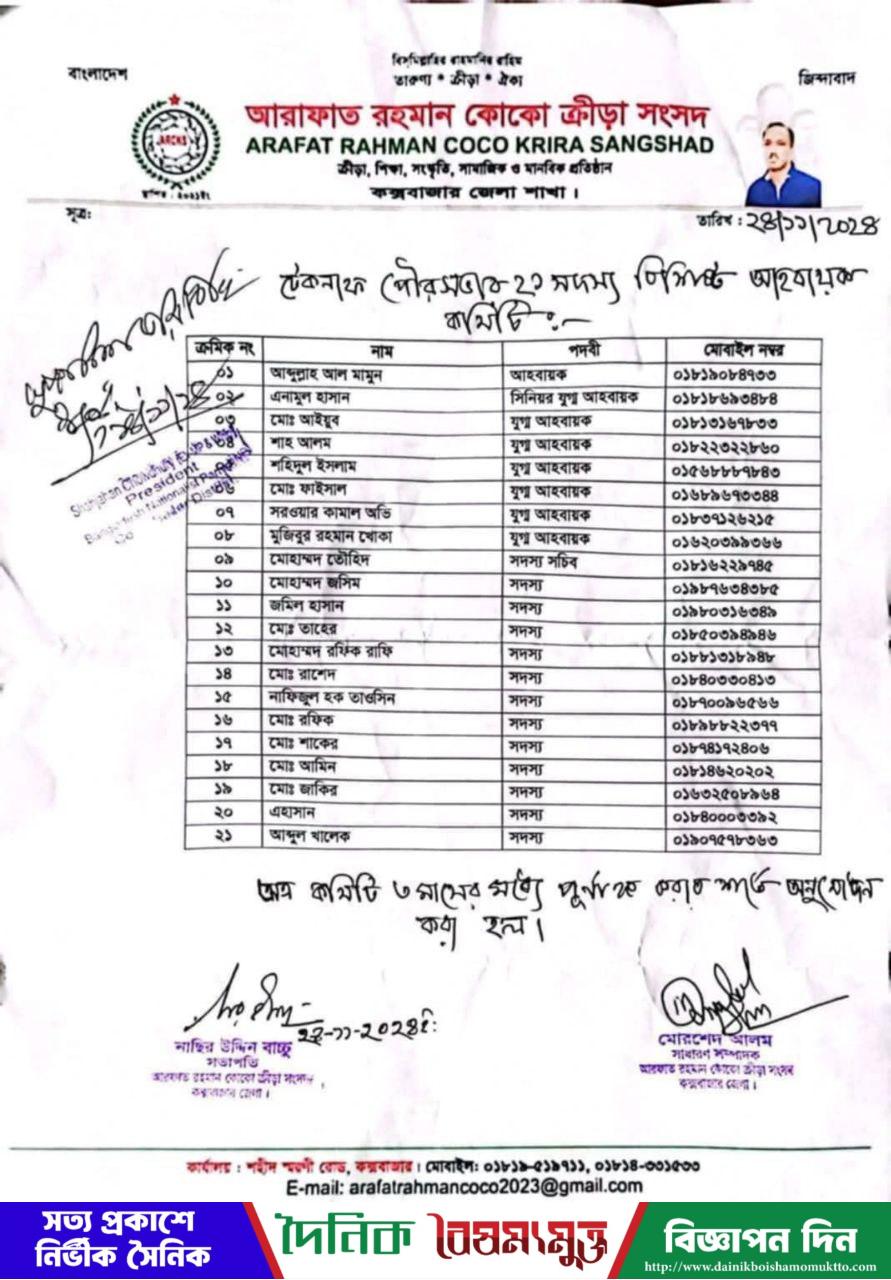 বিসমিল্লাহির রাহমানির রাহিম
বাংলাদেশ
তারুণ্য * ক্রীড়া * ঐক্য
জিন্দাবাদ
ARCKS
আরাফাত রহমান কোকো ক্রীড়া সংসদ
ARAFAT RAHMAN COCO KRIRA SANGSHAD
ক্রীড়া, শিক্ষা, সংস্কৃতি, সামাজিক ও মানবিক প্রতিষ্ঠান
কক্সবাজার জেলা শাখা।
সূত্র:
তারিখ : ২৪/১১/২০২৪
টেকনাফ পৌরসভার ২১ সদস্য বিশিষ্ট আহবায়ক
কমিটি :-
ক্রমিক নং নাম পদবী মোবাইল নম্বর
০১ আব্দুল্লাহ আল মামুন আহবায়ক ০১৮১৯০৮৪৭৩৩
০২ এনামুল হাসান সিনিয়র যুগ্ম আহবায়ক ০১৮১৮৬৯৩৪৮৪
০৩ মোঃ আইয়ুব যুগ্ম আহবায়ক ০১৮১৩১৬৭৮৩৩
০৪ শাহ আলম যুগ্ম আহবায়ক ০১৮২২৩২২৮৬০
শহিদুল ইসলাম যুগ্ম আহবায়ক ০১৫৬৮৮৮৭৮৪৩
০৬ মোঃ ফাইসাল যুগ্ম আহবায়ক ০১৬৮৯৬৭৩৩৪৪
০৭ সরওয়ার কামাল অভি যুগ্ম আহবায়ক ০১৮৩৭১২৬২১৫
০৮ মুজিবুর রহমান খোকা যুগ্ম আহবায়ক ০১৬২০৩৯৯৩৬৬
০৯ মোহাম্মদ তৌহিদ সদস্য সচিব ০১৮১৬২২৯৭৪৫
১০ মোহাম্মদ জসিম সদস্য ০১৯৮৭৬৩৪৩৮৫
১১ জমিল হাসান সদস্য ০১৯৮০৩১৬৩৪৯
১২ মোঃ তাহের সদস্য ০১৮৫০৩৯৪৯৪৬
১৩ মোহাম্মদ রফিক রাফি সদস্য ০১৮৮১৩১৮৯৪৮
১৪ মোঃ রাশেদ সদস্য ০১৮৪০৩৩০৪১৩
১৫ নাফিজুল হক তাওসিন সদস্য ০১৮৭০০৯৬৫৬৬
১৬ মোঃ রফিক সদস্য ০১৮৯৮৮২২৩৭৭
১৭ মোঃ শাকের সদস্য ০১৮৭৪১৭২৪০৬
১৮ মোঃ আমিন সদস্য ০১৮১৪৬২০২০২
১৯ মোঃ জাকির সদস্য ০১৬৩২৫০৮৯৬৪
২০ এহাসান সদস্য ০১৮৪০০০৩৩৯২
২১ আব্দুল খালেক সদস্য ০১৯০৭৫৭৮৩৬৩
President
অত্র কমিটি ৩ মাসের মধ্যে পূর্ণাঙ্গ করার শর্তে অনুমোদন
করা হল।
নাছির উদ্দিন বাচ্চু
সভাপতি
আরাফাত রহমান কোকো ক্রীড়া সংসদ
কক্সবাজার জেলা।
মোরশেদ আলম
সাধারণ সম্পাদক
আরাফাত রহমান কোকো ক্রীড়া সংসদ
কক্সবাজার জেলা।
কার্যালয় : শহীদ স্মরণী রোড, কক্সবাজার। মোবাইল: ০১৮১৯-৫১৯৭১১, ০১৮১৪-৩৩১৫৩৩
E-mail: arafatrahmancoco2023@gmail.com
সত্য প্রকাশে
নির্ভীক সৈনিক
দৈনিক বৈষম্যমুক্ত
বিজ্ঞাপন দিন
http://www.dainikboishamomuktto.com